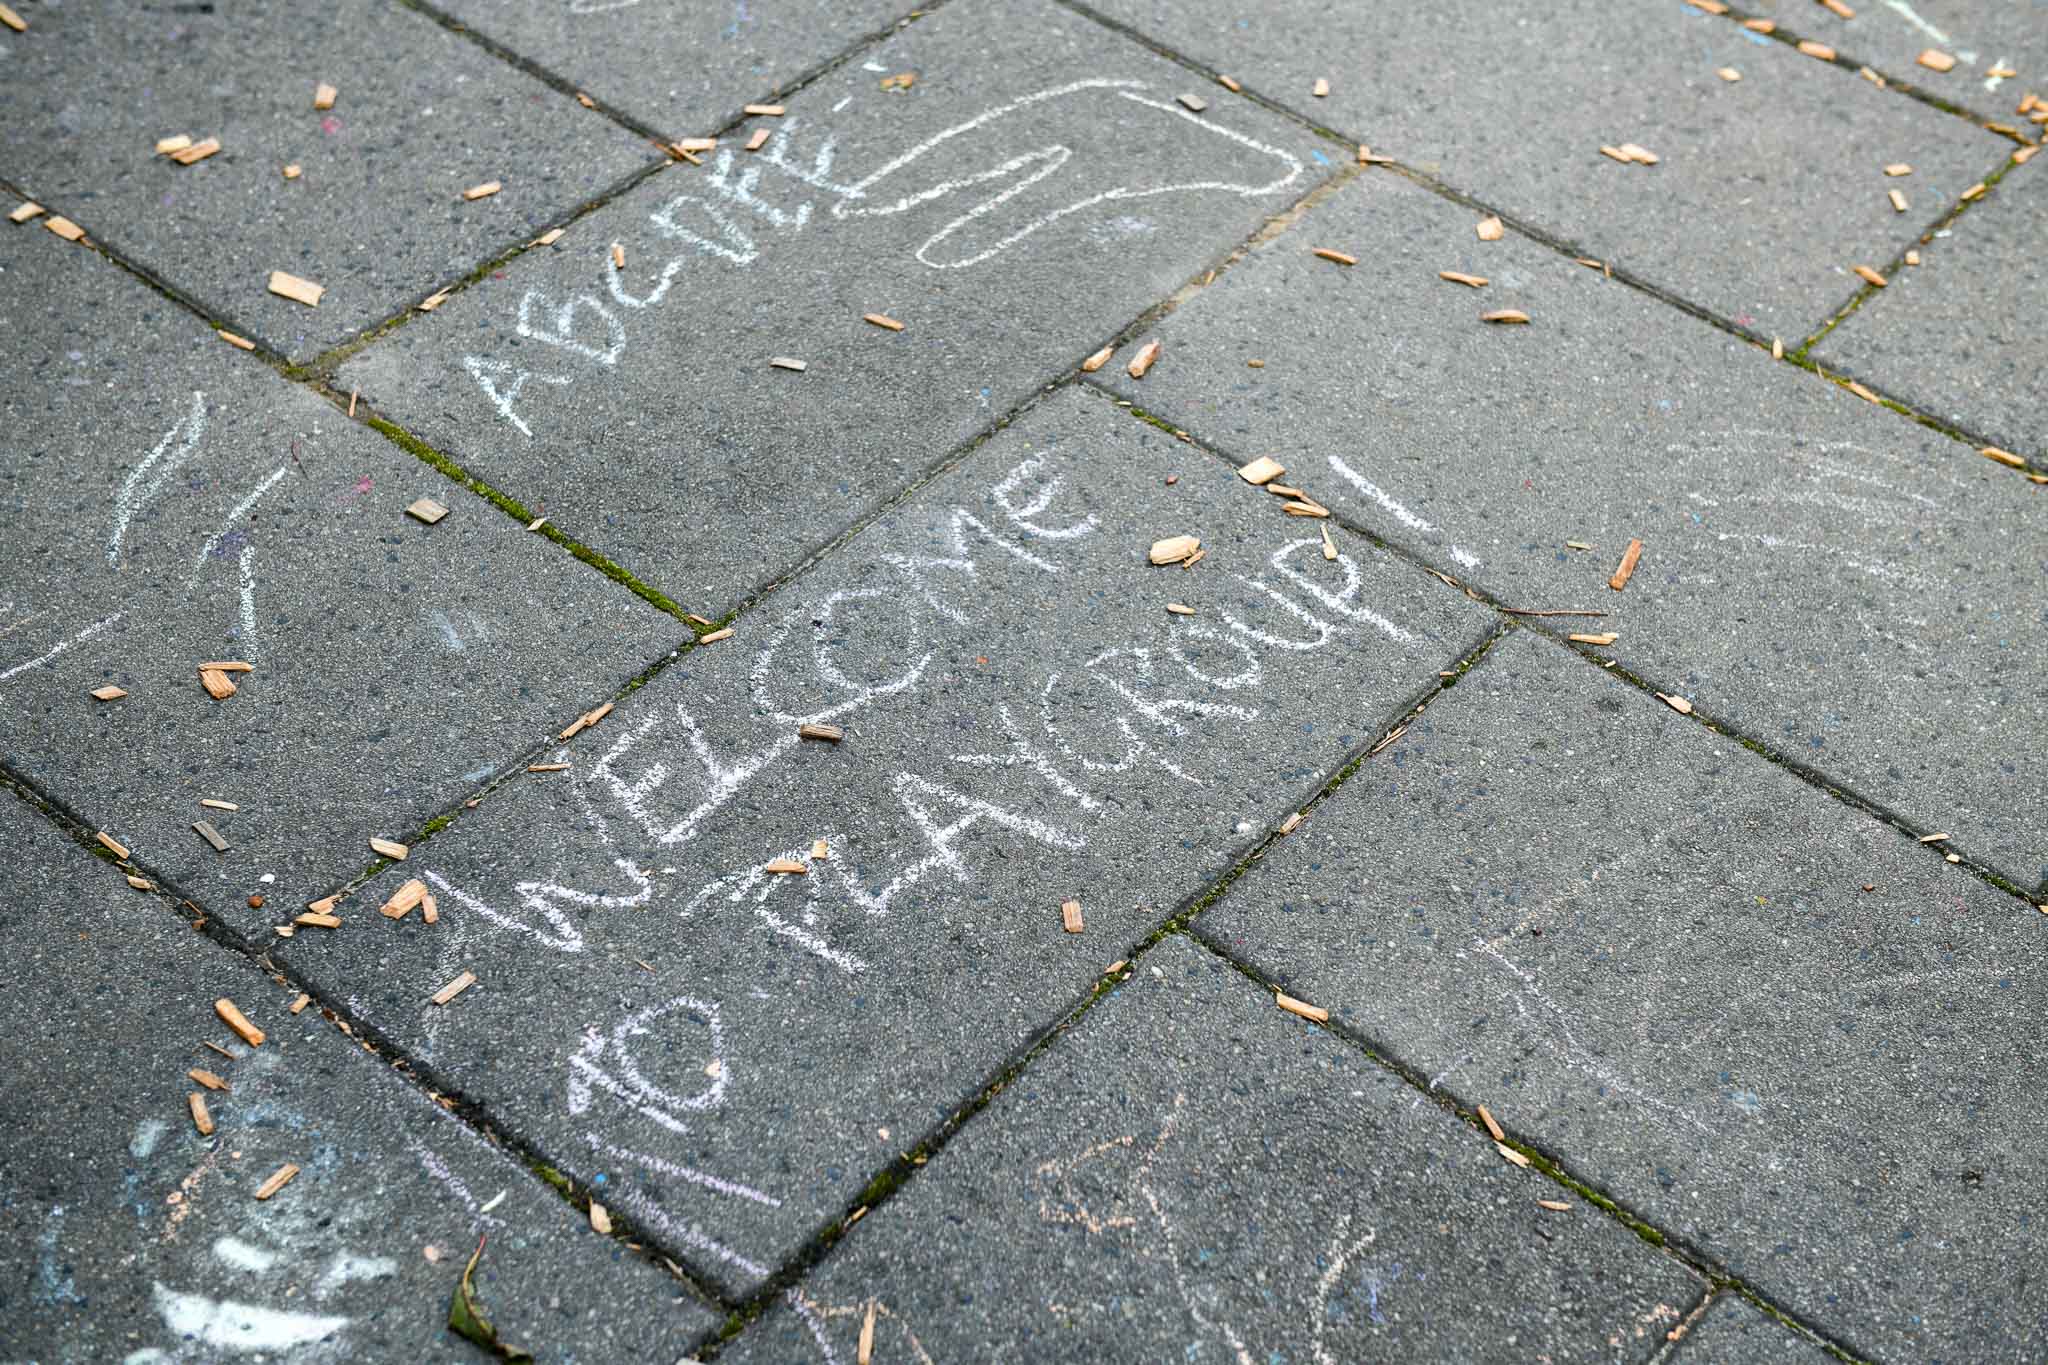 ABC-DEF
WELCOME
TO PLAYGROUP!